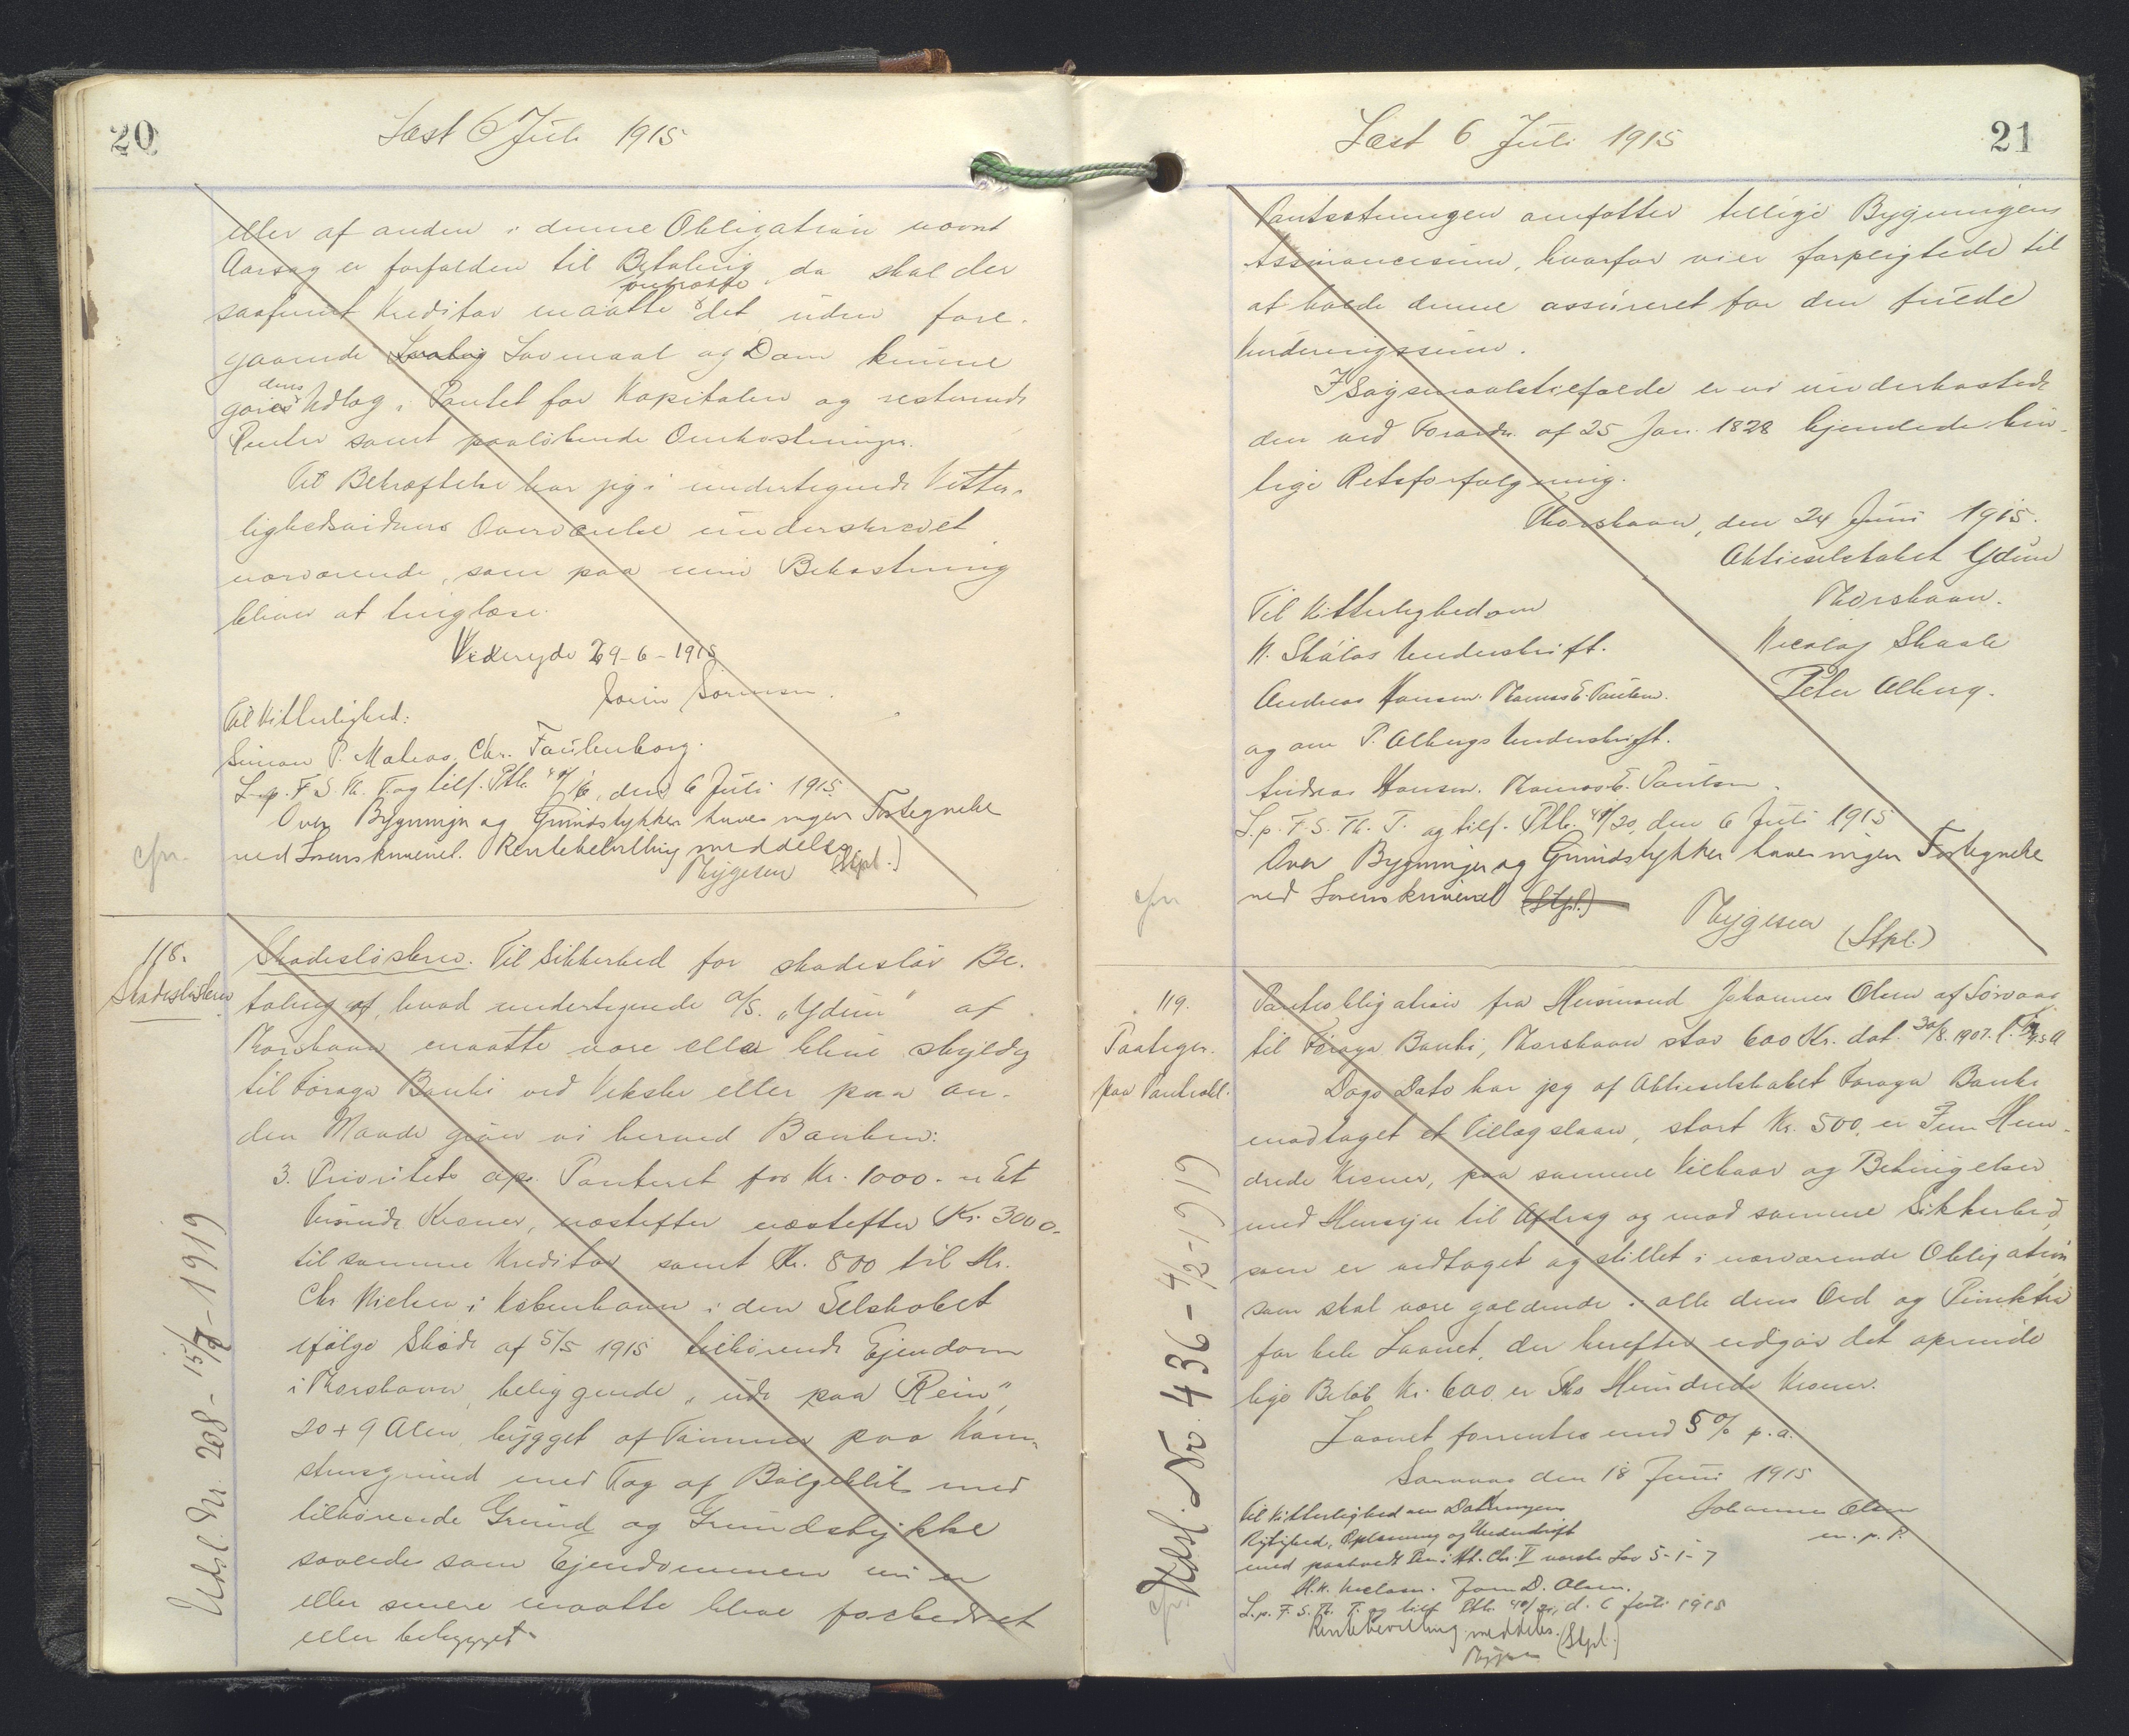 20
Læst 6 Juli 1915
eller af anden i denne Obligation nævnt
Aarsag er forfalden til Betaling da skal der
saafremt Kreditor maatte paastaa det uden fore-
gaaende Lovmaal og Dom kunne
gøres Udlæg i Pantet for Kapitalen og resterende
Renter samt paaløbende Omkostninger.
Til Bekræftelse har jeg i undertegnede Vitter-
lighedsvidners Overværelse underskrevet
nærværende, som paa min Bekostning
bliver at tinglæse.
29-6-1915
Sørensen.
Til Vitterlighed:
Simon P. Chr.
L.p. F. S. Th. T. og tilf. Ptb. den 6 Juli 1915
Over Bygninger og Grundstykker haves ingen Fortegnelse
ved Sorenskriveriet. Rentebevilling meddeles
Bygesen (Stpl.)
cfr.
118.
Skadesløsbrev
Skadesløsbrev. Til Sikkerhed for skadesløs Be-
taling af, hvad undertegnede A/S. „Ydun" af
Thorshavn maatte være eller blive skyldig
til Føroya Banki ved Veksler eller paa an-
den Maade giver vi herved Banken:
3. Prioritets opr. Panteret for Kr. 1000.- er Et
tusinde Kroner, næstefter næstefter Kr. 3000.-
til samme Kreditor samt Kr. 800 til Hr.
Chr Nielsen i København i den Selskabet
ifølge Skøde af 5/5 1915 tilhørende Ejendom
i Thorshavn, beliggende „úti paa Rein",
20 + 9 Alen, bygget af Tømmer paa Kam-
stensgrund med Tag af Bølgeblik med
tilhørende Grund og Grundstykke
saavel som Ejendommen nu er
eller senere maatte blive forbedret
eller bebygget.
Udsl. Nr. 208 - 15/7 - 1919
21
Læst 6 Juli 1915
Pantsætningen omfatter tillige Bygningens
Assurancesum, hvorfor vi er forpligtede til
at holde denne assureret for den fulde
Vurderingssum.
I Søgsmaalstilfælde er vi underkastede
den ved Forordn. af 25 Jan. 1828 hjemlede kin-
lige Retsforfølgning.
Thorshavn, den 24 Juni 1915.
Aktieselskabet Ydun
Thorshavn.
Til Vitterlighed om
N. Skáles Underskrift.
Nicolaj Skaale
Andreas Hansen. Thomas E. Poulsen.
Peter Alberg.
og om P. Albergs Underskrift.
Andreas Hansen. Thomas E. Poulsen.
L. p. F. S. Th. T. og tilf. Ptb. 41/20, den 6 Juli 1915
Over Bygninger og Grundstykker haves ingen Fortegnelse
ved Sorenskriveriet (Stpl.)
Bygesen (Stpl.)
cfr
119.
Paategn.
paa Panteobl.
Panteobligation fra Husmand Johannes Olsen af Sørvaag
til Føroya Banki, Thorshavn stor 600 Kr. dat. 30/8 1907.
Dags Dato har jeg af Aktieselskabet Føroya Banki
modtaget et Tillægslaan, stort Kr. 500, er Fem Hun-
drede Kroner, paa samme Vilkaar og Betingelser
med Hensyn til Afdrag og mod samme Sikkerhed,
som er vedtaget og stillet i nærværende Obligation
som skal være gældende i alle dens Ord og Punkter
for hele Laanet, der herefter udgør det oprinde
lige Beløb Kr. 600 er Sex Hundrede Kroner.
Laanet forrentes med 5 % p.a.
Sørvaag den 18 Juni 1915
Til Vitterlighed om Dateringens
Johannes Olsen
Rigtighed, Oplæsning og Underskrift
m. p. P.
med paaholdt Pen i Hh. Chr. V norske Lov 5-1-7
L. p. F. S. Th. T. og tilf. Ptb. d. 6 Juli 1915
Rentebevilling meddeles. (Stpl.)
Bygesen
cfr.
Udsl. Nr. 436 - 4/2 - 1919